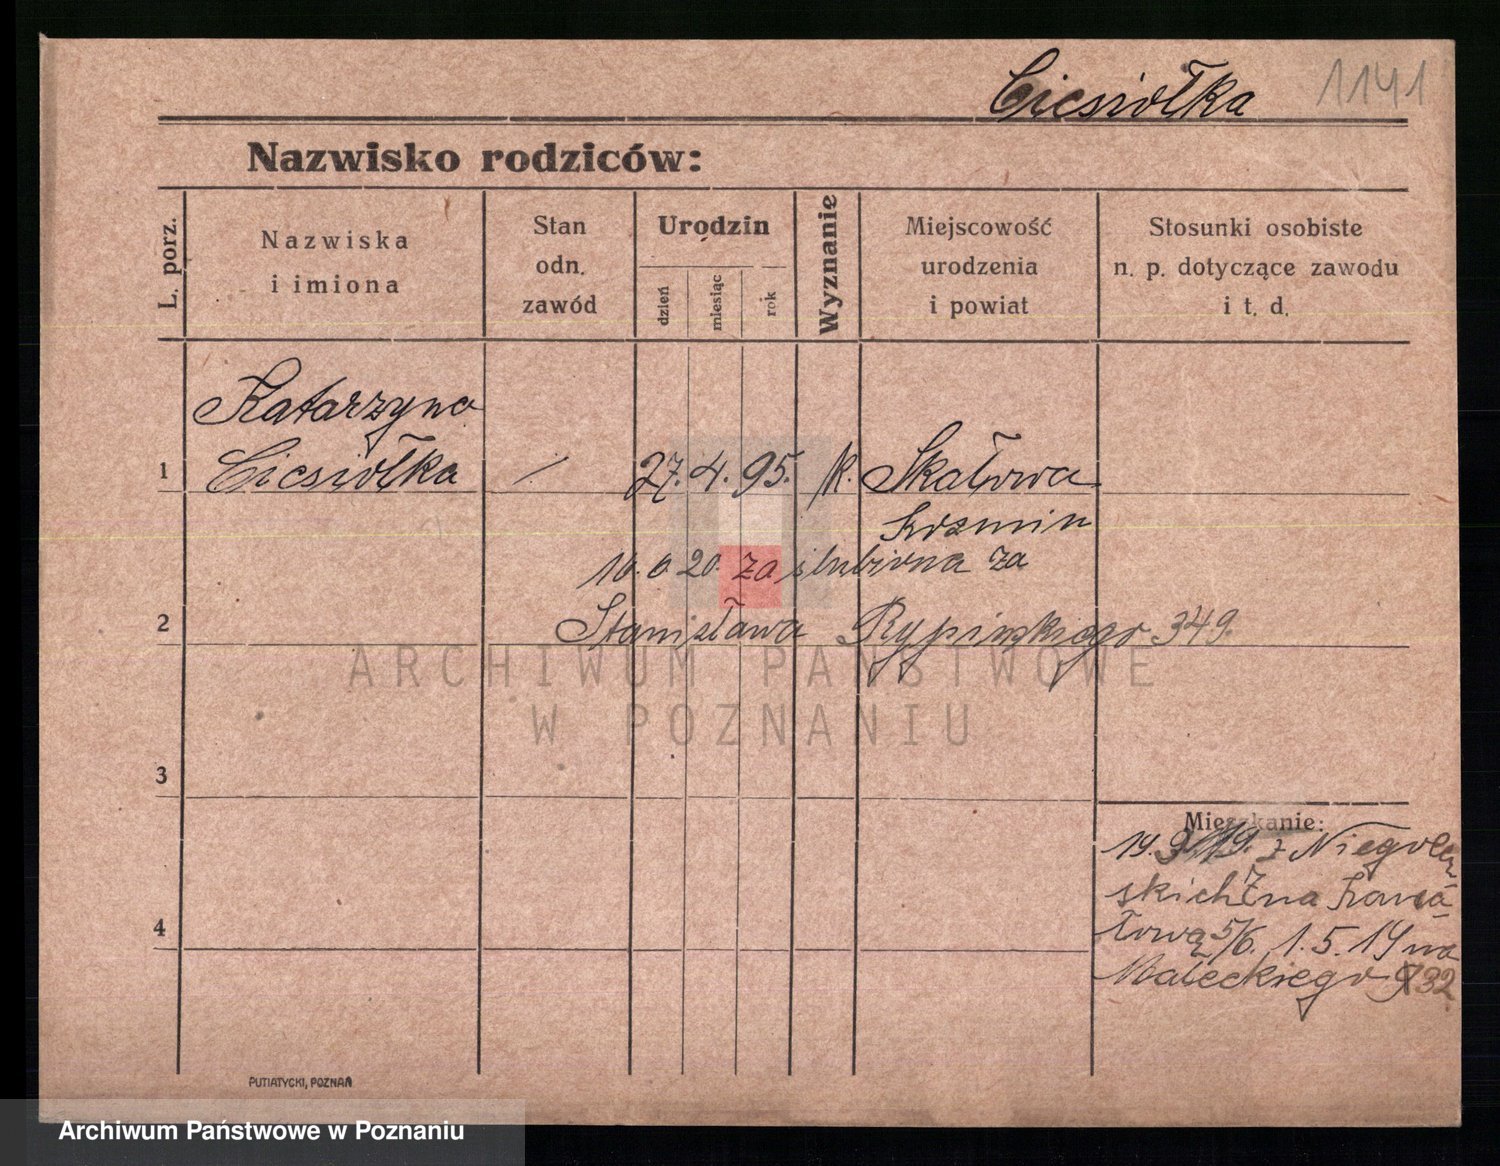 Ciesiołka 1141
Nazwisko rodziców:
L. porz.
Nazwiska
i imiona
Stan
odn.
zawód
Urodzin
dzień
miesiąc
rok
Wyznanie
Miejscowość
urodzenia
i powiat
Stosunki osobiste
n. p. dotyczące zawodu
i t. d.
Katarzyna
1 Ciesiołka / 27. 4. 95. K. Skałowa
Kozmin
16. 6. 20. zaślubiona za
2 Stanisława Rypińskiego 349.
ARCHIWUM PAŃSTWOWE
W POZNANIU
3
Mieszkanie:
19. z Niegolew
skich 7 na
4 5/6. 1. 5. 19 na
Małeckiego 32
PUTIATYCKI, POZNAŃ
Archiwum Państwowe w Poznaniu